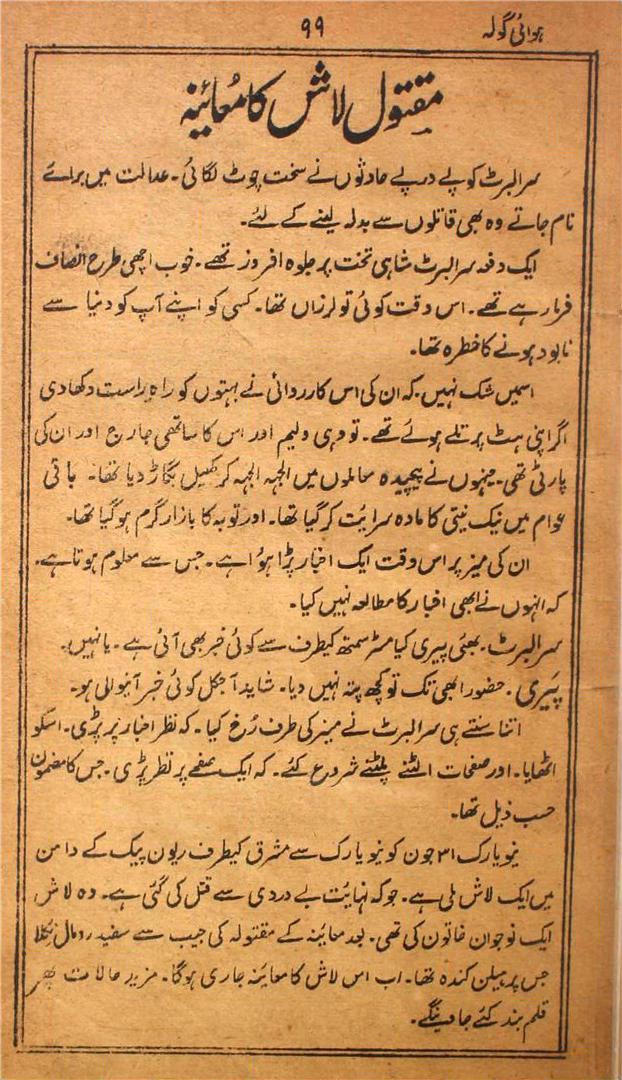 ہوائی گولہ ۹۹
مقتول لاش کا معائنہ
سرالبرٹ کو پے درپے حادثوں نے سخت چوٹ لگائی۔ عدالت میں برائے
نام جاتے وہ بھی قاتلوں سے بدلہ لینے کے لئے۔
ایک دفعہ سرالبرٹ شاہی تخت پر جلوہ افروز تھے۔ خوب اچھی طرح انصاف
فرما رہے تھے۔ اس وقت کوئی تو لرزاں تھا۔ کسی کو اپنے آپ کو دنیا سے
نابود ہونے کا خطرہ تھا۔
اسمیں شک نہیں۔ کہ ان کی اس کارروائی نے بہتوں کو راہ راست دکھا دی
اگر اپنی ہٹ پر تلے ہوئے تھے۔ تو وہی ولیم اور اس کا ساتھی جارج اور ان کی
پارٹی تھی۔ جنہوں نے پیچیدہ معاملوں میں الجہہ الجہہ کر کھیل بگاڑ دیا تھا۔ باقی
عوام میں نیک نیتی کا مادہ سرایت کر گیا تھا۔ اور توبہ کا بازار گرم ہو گیا تھا۔
ان کی میز پر اس وقت ایک اخبار پڑا ہؤا ہے۔ جس سے معلوم ہوتا ہے۔
کہ انہوں نے ابھی اخبار کا مطالعہ نہیں کیا۔
سرالبرٹ۔ بھئی پیری کیا مسٹر سمتھ کیطرف سے کوئی خبر بھی آئی ہے۔ یا نہیں۔
پیری۔ حضور ابھی تک تو کچھ پتہ نہیں دیا۔ شاید آجکل کوئی خبر آنیوالی ہو۔
اتنا سنتے ہی سرالبرٹ نے میز کی طرف رُخ کیا۔ کہ نظر اخبار پر پڑی۔ اسکو
اٹھایا۔ اور صفحات الٹنے پلٹنے شروع کئے۔ کہ ایک صفحے پر نظر پڑی۔ جس کا مضمون
حسب ذیل تھا۔
نیویارک ۳۱ جون کو نیویارک سے مشرق کیطرف ریون پیک کے دامن
میں ایک لاش ملی ہے۔ جو کہ نہایت بے دردی سے قتل کی گئی ہے۔ وہ لاش
ایک نوجوان خاتون کی تھی۔ بعد معاینہ کے مقتولہ کی جیب سے سفید رومال نکلا
جس پر ہیلن کندہ تھا۔ اب اس لاش کا معاینہ جاری ہوگا۔ مزید حالات پھر
قلم بند کئے جاوینگے۔